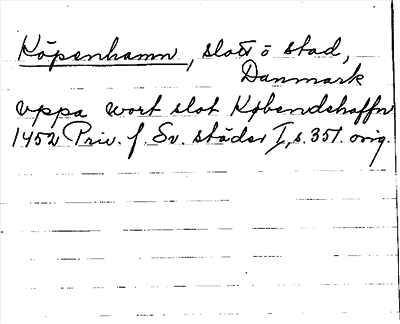 Köpenhamn, slott o stad,
Danmark
vppa wort slot Købendehaffn
1452 Priv. f. Sv. städer I, s. 351. orig.